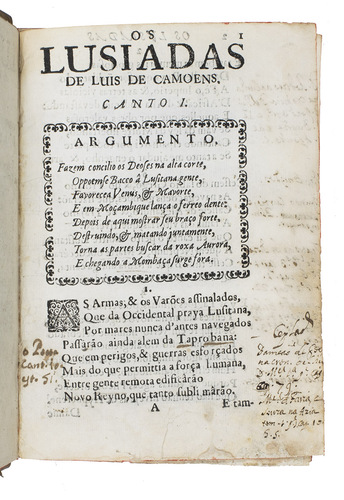 OS
1
LUSIADAS
DE LUIS DE CAMOENS.
CANTO I.
ARGUMENTO.
Fazem concilio os Deoses na alta corte,
Oppoemse Bacco â Lusitana gente,
Favorecea Venus, & Mavorte,
E em Moçambique lança o ferreo dente:
Depois de aqui mostrar seu braço forte,
Destruindo, & matando juntamente,
Torna as partes buscar da roxa Aurora,
E chegando a Mombaça surge fora.
1.
AS Armas, & os Varões assinalados,
Que da Occidental praya Lusitana,
Por mares nunca d'antes navegados
Passàrão ainda alem da Taprobana:
Que em perigos, & guerras esforçados
Mais do que permittia a força humana,
Entre gente remota edificàrão
Novo Reyno, que tanto sublimàrão.
A
E tam-